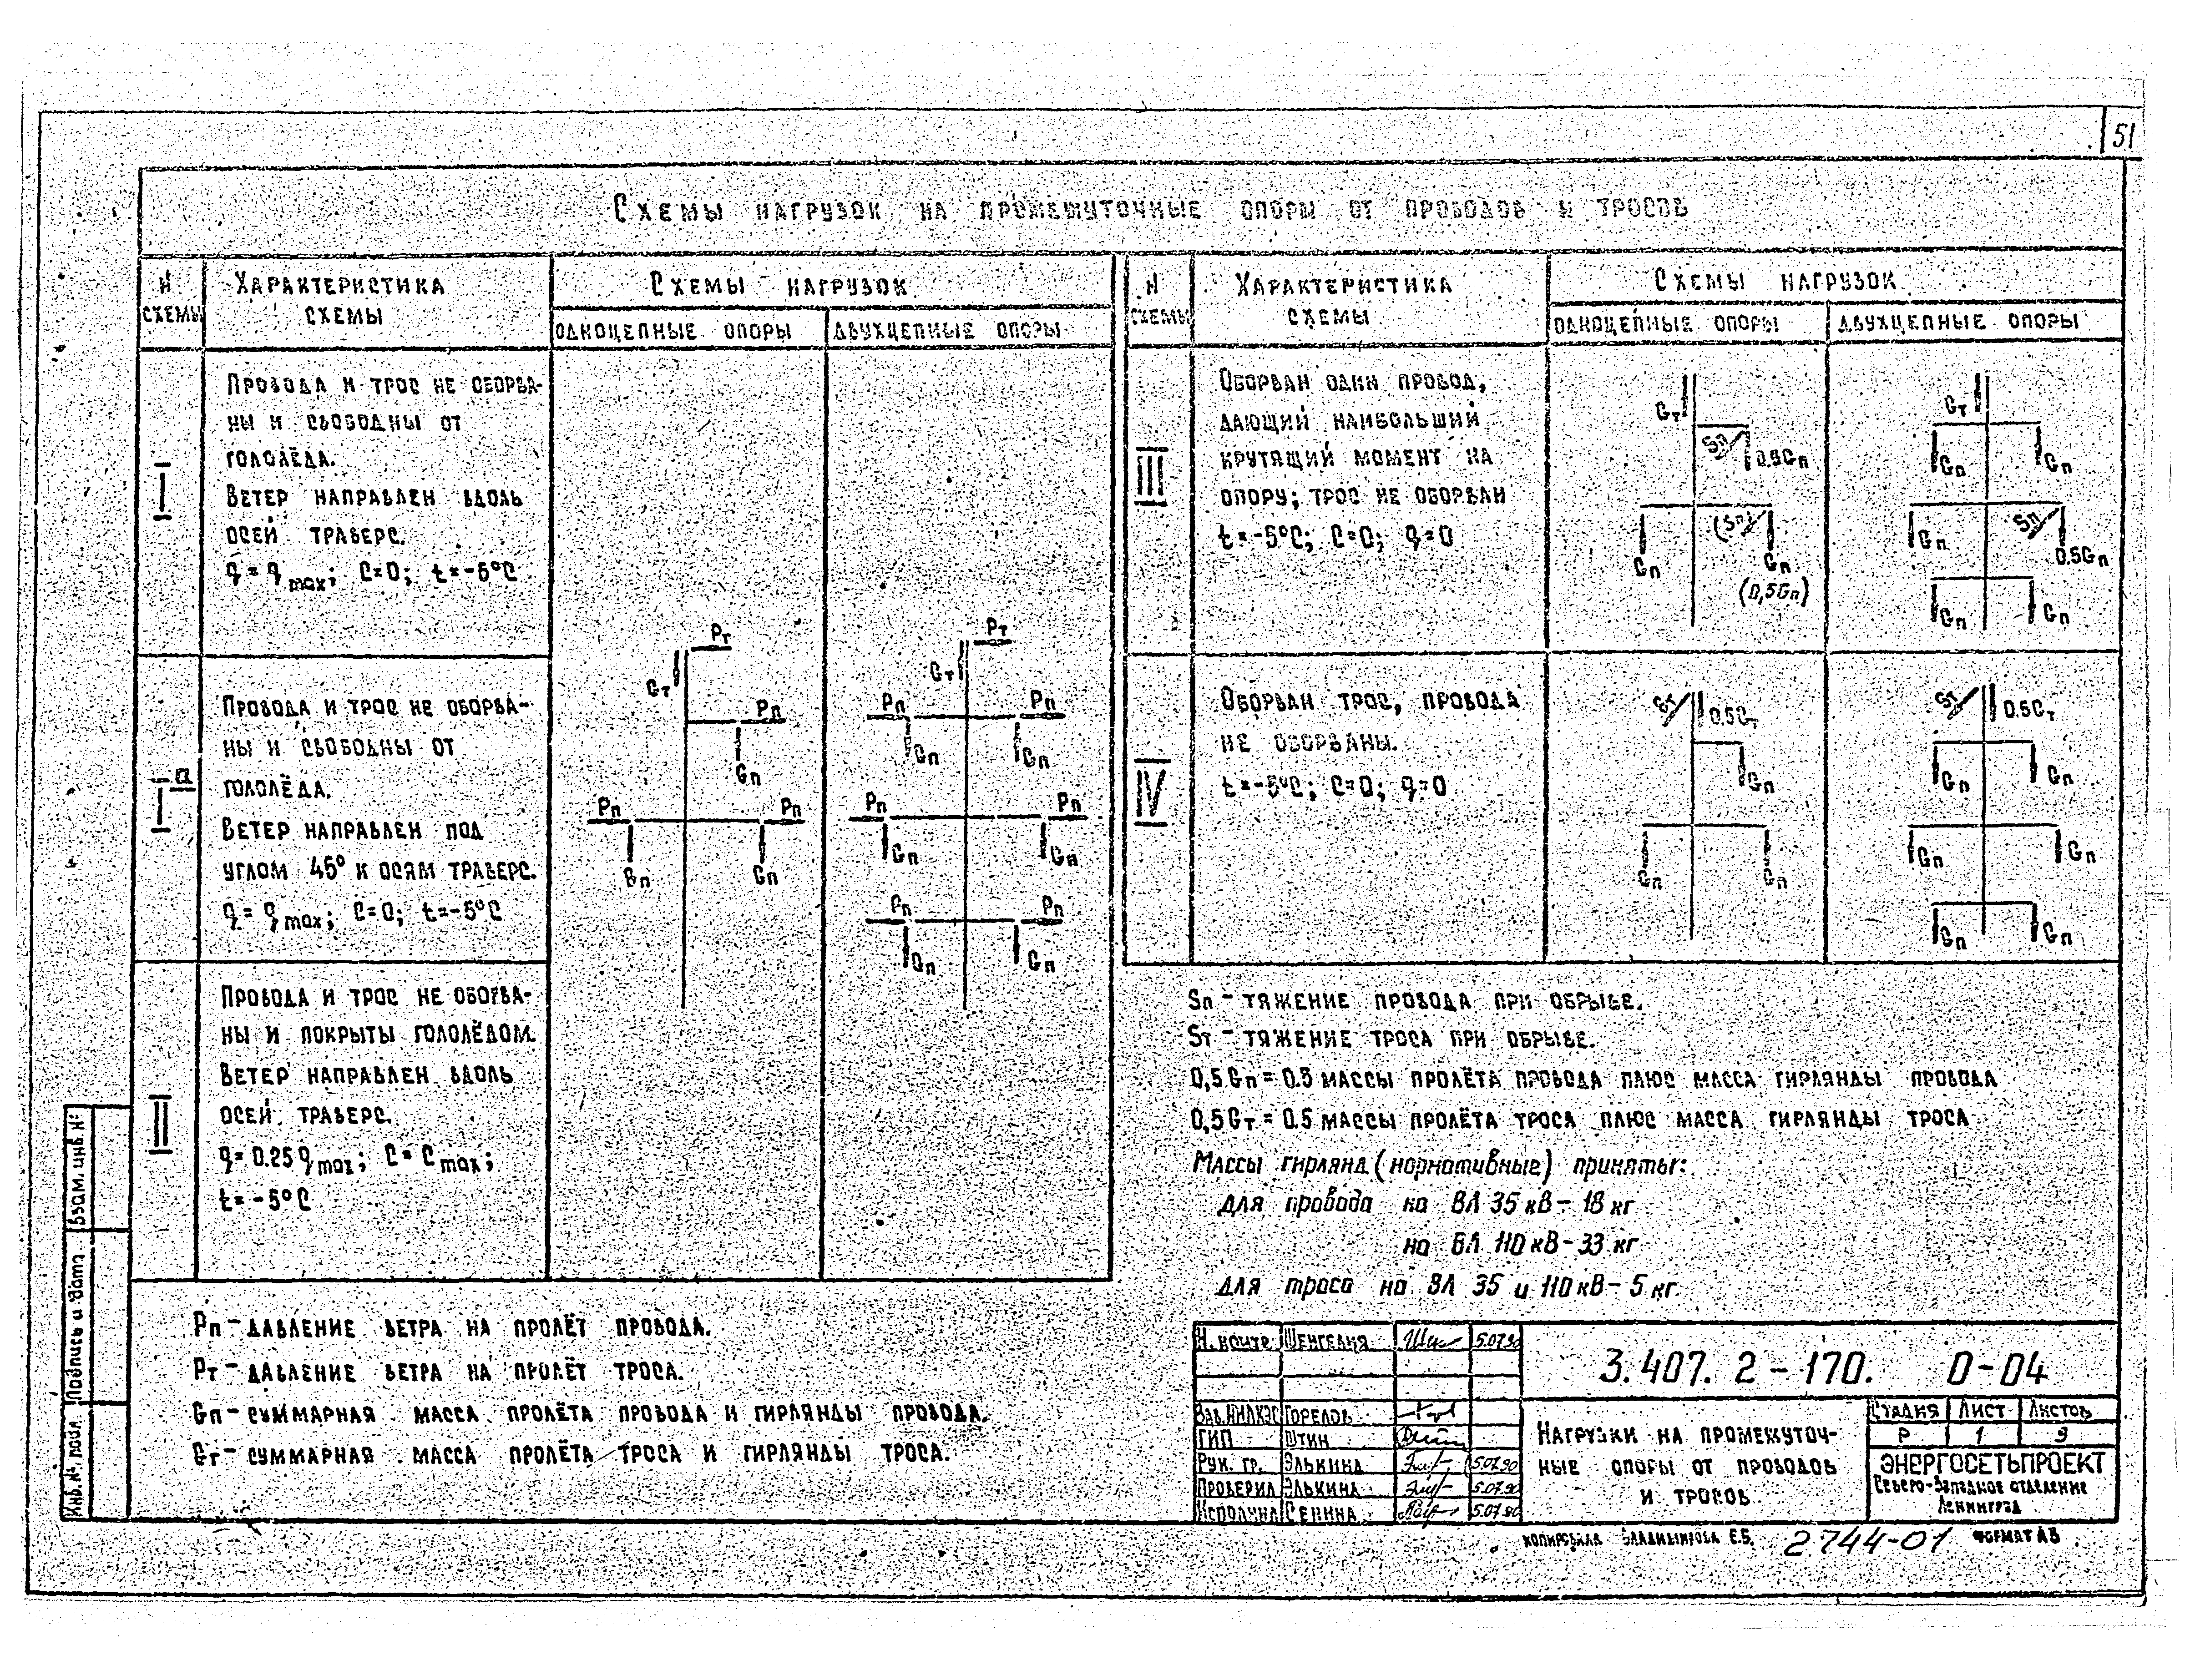 51
Схемы нагрузок на промежуточные опоры от проводов и тросов
N схемы
Характеристика схемы
Схемы нагрузок
одноцепные опоры
двухцепные опоры
I
Провода и трос не оборва-
ны и свободны от
гололёда.
Ветер направлен вдоль
осей траверс.
q = q max; C=0; t=-5°C
Iа
Провода и трос не оборва-
ны и свободны от
гололёда.
Ветер направлен под
углом 45° к осям траверс.
q = q max; C=0; t=-5°C
II
Провода и трос не оборва-
ны и покрыты гололёдом.
Ветер направлен вдоль
осей траверс.
q=0.25 q max; C=C max;
t=-5°C
Pт
Gт
Pп
Gп
Pп Pп
Gп Gп
Pт
Gт
Pп Pп
Gп Gп
Pп Pп
Gп Gп
Pп Pп
Gп Gп
N схемы
Характеристика схемы
Схемы нагрузок
одноцепные опоры
двухцепные опоры
III
Оборван один провод,
дающий наибольший
крутящий момент на
опору; трос не оборван
t=-5°C; C=0; q=0
Gт
Sп 0.5Gп
(Sп)
Gп Gп
(0,5Gп)
Gт
Gп Gп
Gп Sп
0.5Gп
Gп Gп
IV
Оборван трос, провода
не оборваны.
t=-5°C; C=0; q=0
Sт 0.5Gт
Gп
Gп Gп
Sт 0.5Gт
Gп Gп
Gп Gп
Gп Gп
Sп – тяжение провода при обрыве.
Sт – тяжение троса при обрыве.
0,5Gп = 0.5 массы пролёта провода плюс масса гирлянды провода
0,5Gт = 0.5 массы пролёта троса плюс масса гирлянды троса
Массы гирлянд (нормативные) приняты:
для провода на ВЛ 35 кВ – 18 кг
на ВЛ 110 кВ – 33 кг
для троса на ВЛ 35 и 110 кВ – 5 кг.
Pп – давление ветра на пролёт провода.
Pт – давление ветра на пролёт троса.
Gп – суммарная масса пролёта провода и гирлянды провода.
Gт – суммарная масса пролёта троса и гирлянды троса.
Взам. инв. N:
Подпись и дата
Инв. N: подл.
Н. контр. Шенгелия 5.07.90
Зав. НИЛКЭС Горелов
ГИП Штин
Рук. гр. Элькина 5.07.90
Проверил Элькина 5.07.90
Исполнил Сенина 5.07.90
3.407. 2 – 170. 0-04
Нагрузки на промежуточ-
ные опоры от проводов
и тросов
Стадия Лист Листов
Р 1 9
ЭНЕРГОСЕТЬПРОЕКТ
Северо-Западное отделение
Ленинград
Копировала Владимирова Е.Б. 2744-01 Формат А3